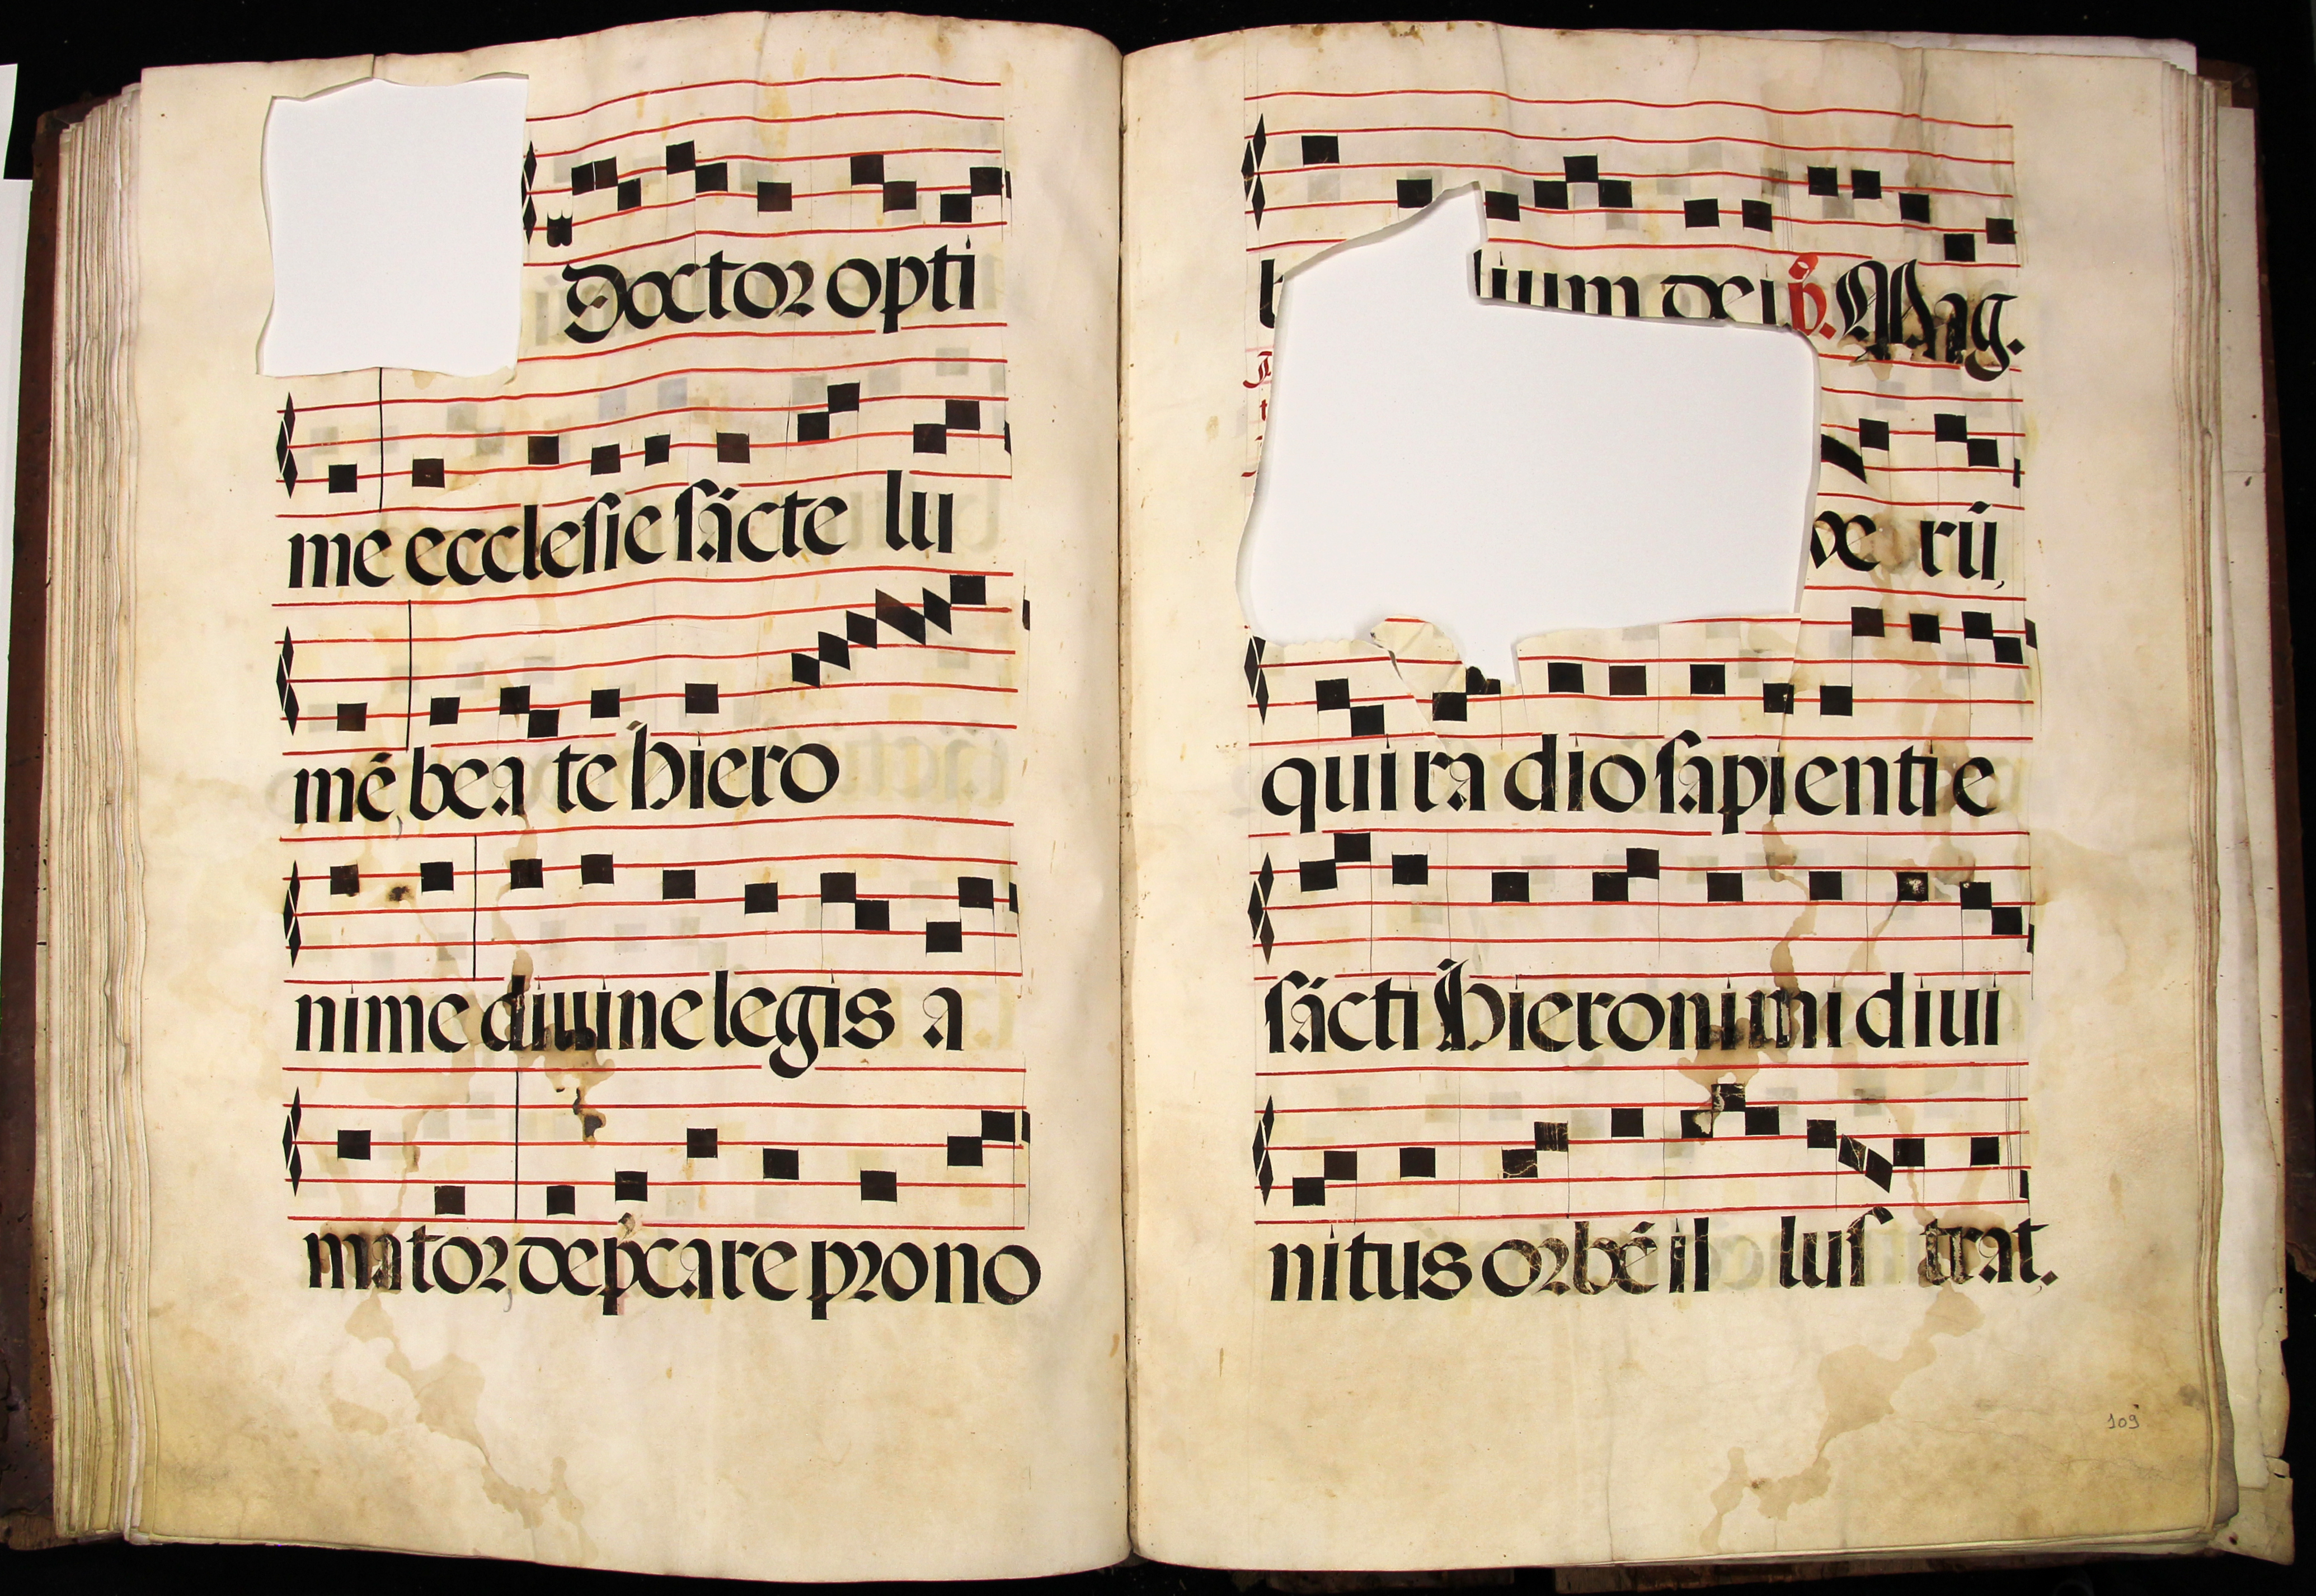 Doctor opti
me ecclesie sācte lu
mē, bea te hiero
nime diuine legis a
mator, depcare pro no
lium dei P. Mag.
ve rū,
qui ra dio sapientie
sācti hieronimi diui
nitus orbē il lus trat.
109